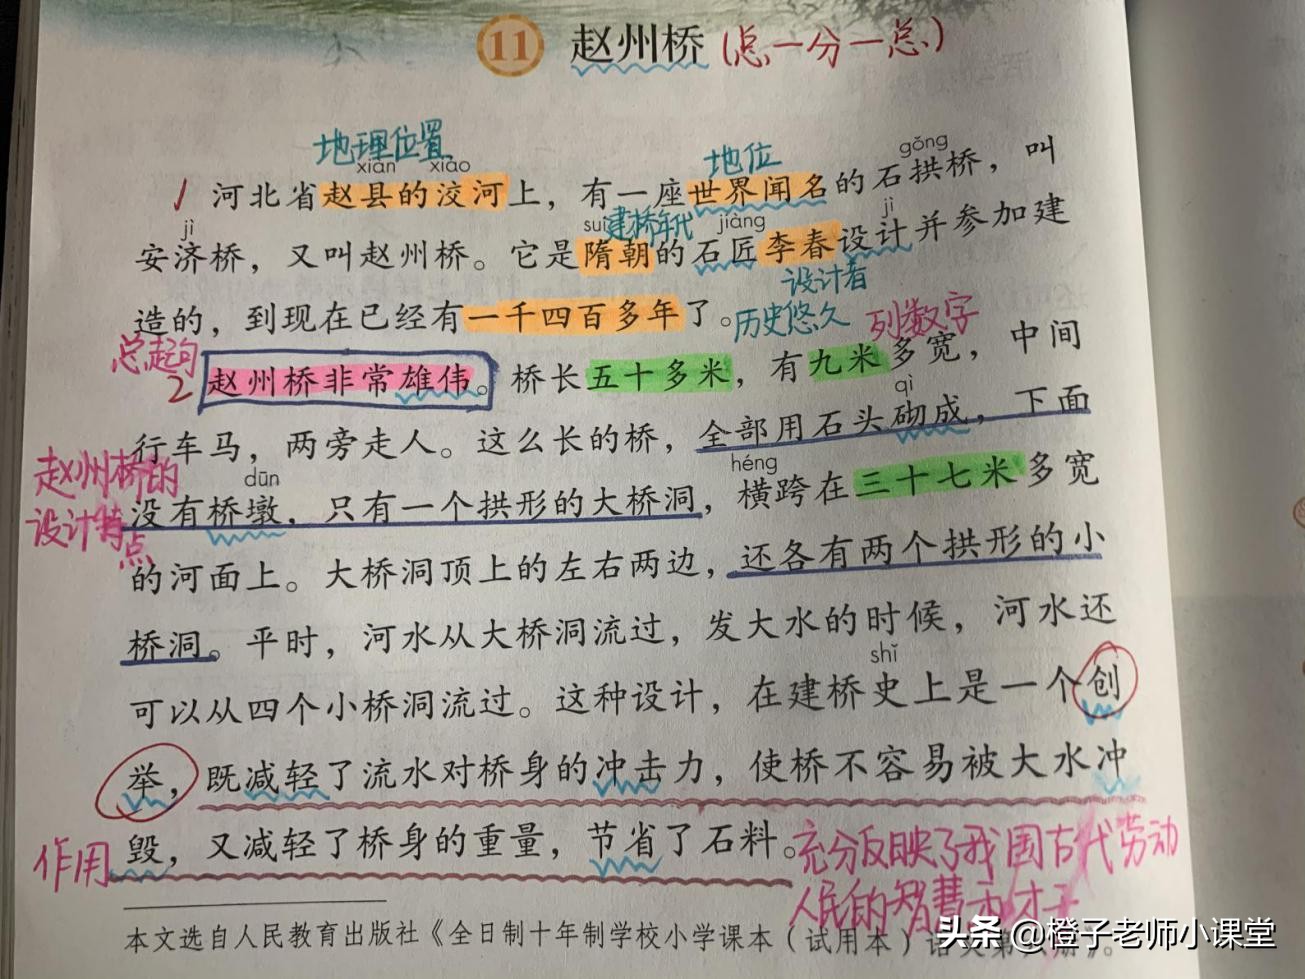 11 赵州桥 (总一分一总)
地理位置 地位
xiàn xiáo gǒng
1 河北省赵县的洨河上，有一座世界闻名的石拱桥，叫
jì suí 建桥年代 jiàng jì
安济桥，又叫赵州桥。它是隋朝的石匠李春设计并参加建
设计者
造的，到现在已经有一千四百多年了。历史悠久 列数字
总起句
2 赵州桥非常雄伟。桥长五十多米，有九米多宽，中间
qì
行车马，两旁走人。这么长的桥，全部用石头砌成，下面
赵州桥的设计特点
dūn héng
没有桥墩，只有一个拱形的大桥洞，横跨在三十七米多宽
的河面上。大桥洞顶上的左右两边，还各有两个拱形的小
桥洞。平时，河水从大桥洞流过，发大水的时候，河水还
shǐ
可以从四个小桥洞流过。这种设计，在建桥史上是一个创
举，既减轻了流水对桥身的冲击力，使桥不容易被大水冲
作用 毁，又减轻了桥身的重量，节省了石料。充分反映了我国古代劳动
人民的智慧和才干
本文选自人民教育出版社《全日制十年制学校小学课本（试用本）语文第
头条 @橙子老师小课堂